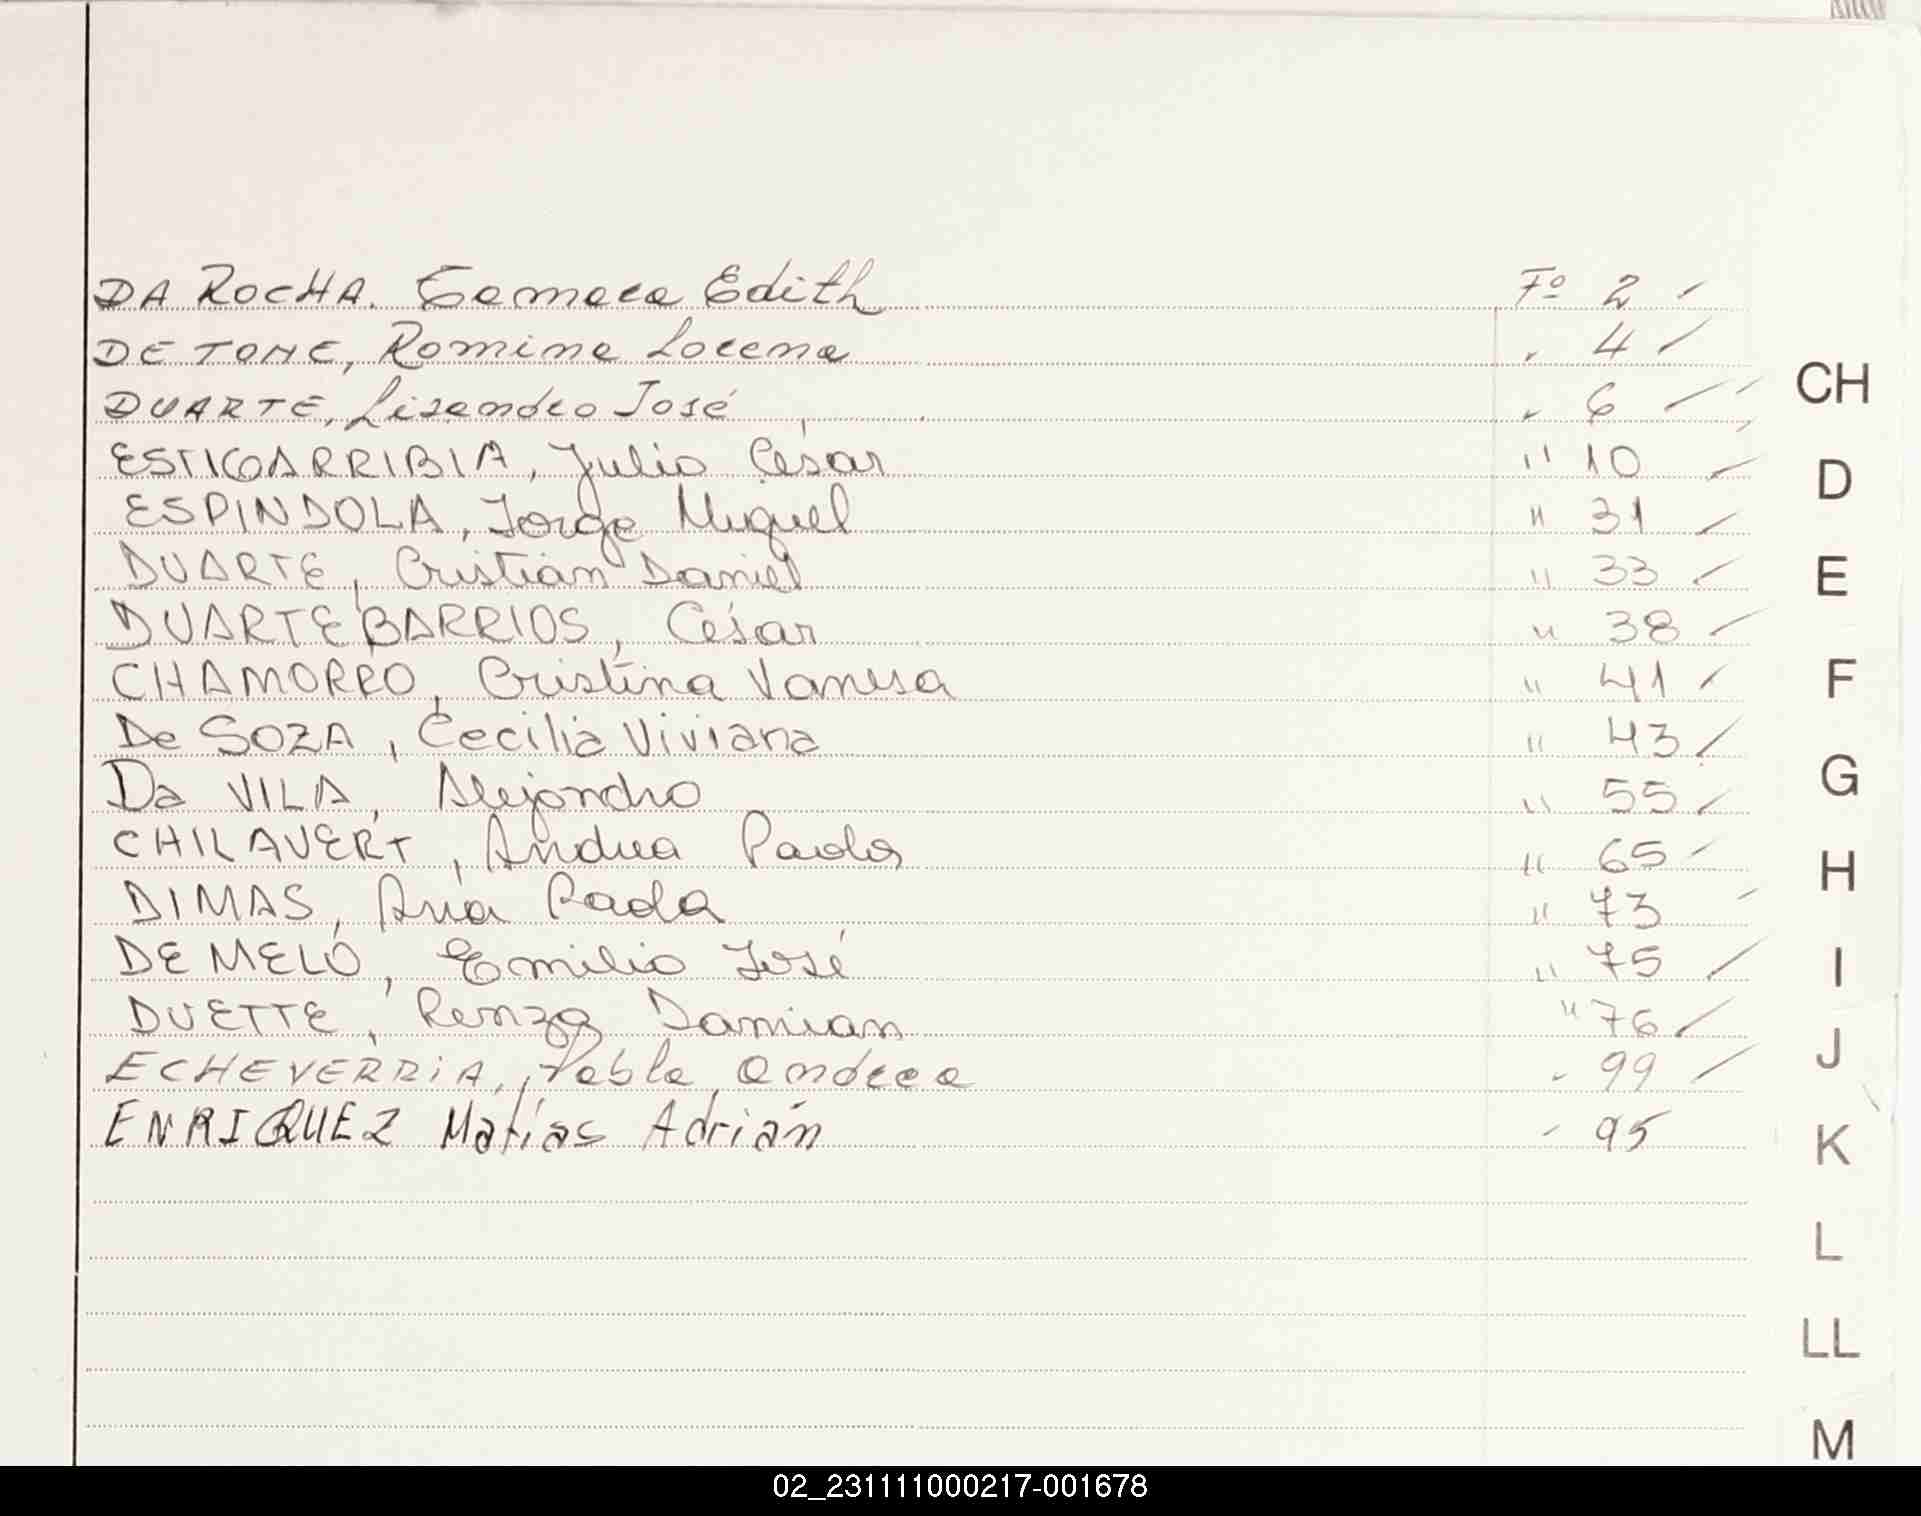 DA ROCHA. Tamara Edith Fº 2
DE TOME, Romina Lorena " 4
DUARTE, Lisandro José " 6
ESTIGARRIBIA, Julio César " 10
ESPINDOLA, Jorge Miguel " 31
DUARTE, Cristian Daniel " 33
DUARTE BARRIOS, César " 38
CHAMORRO, Cristina Vanesa " 41
De SOZA, Cecilia Viviana " 43
Da VILA, Alejandro " 55
CHILAVERT, Andrea Paola " 65
DIMAS, Ana Paola " 73
DE MELO, Emilio José " 75
DUETTE, Renzo Damian " 76
ECHEVERRiA, Pabla Andrea " 99
ENRIQUEZ Matías Adrián " 95
CH
D
E
F
G
H
I
J
K
L
LL
M
02_231111000217-001678